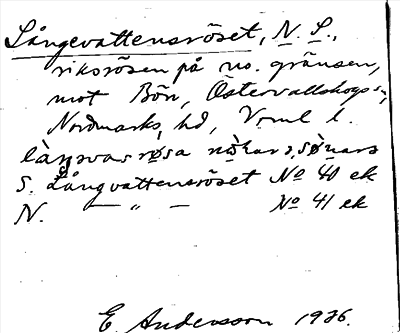 Långevattensröset, N. S.,
riksrösen på no. gränsen,
mot Bön, Östervallskogs sn,
Nordmarks hd, Vrml l.
S. Långvattensröset No 40 ek
N. — " — No 41 ek
E. Andersson 1926.